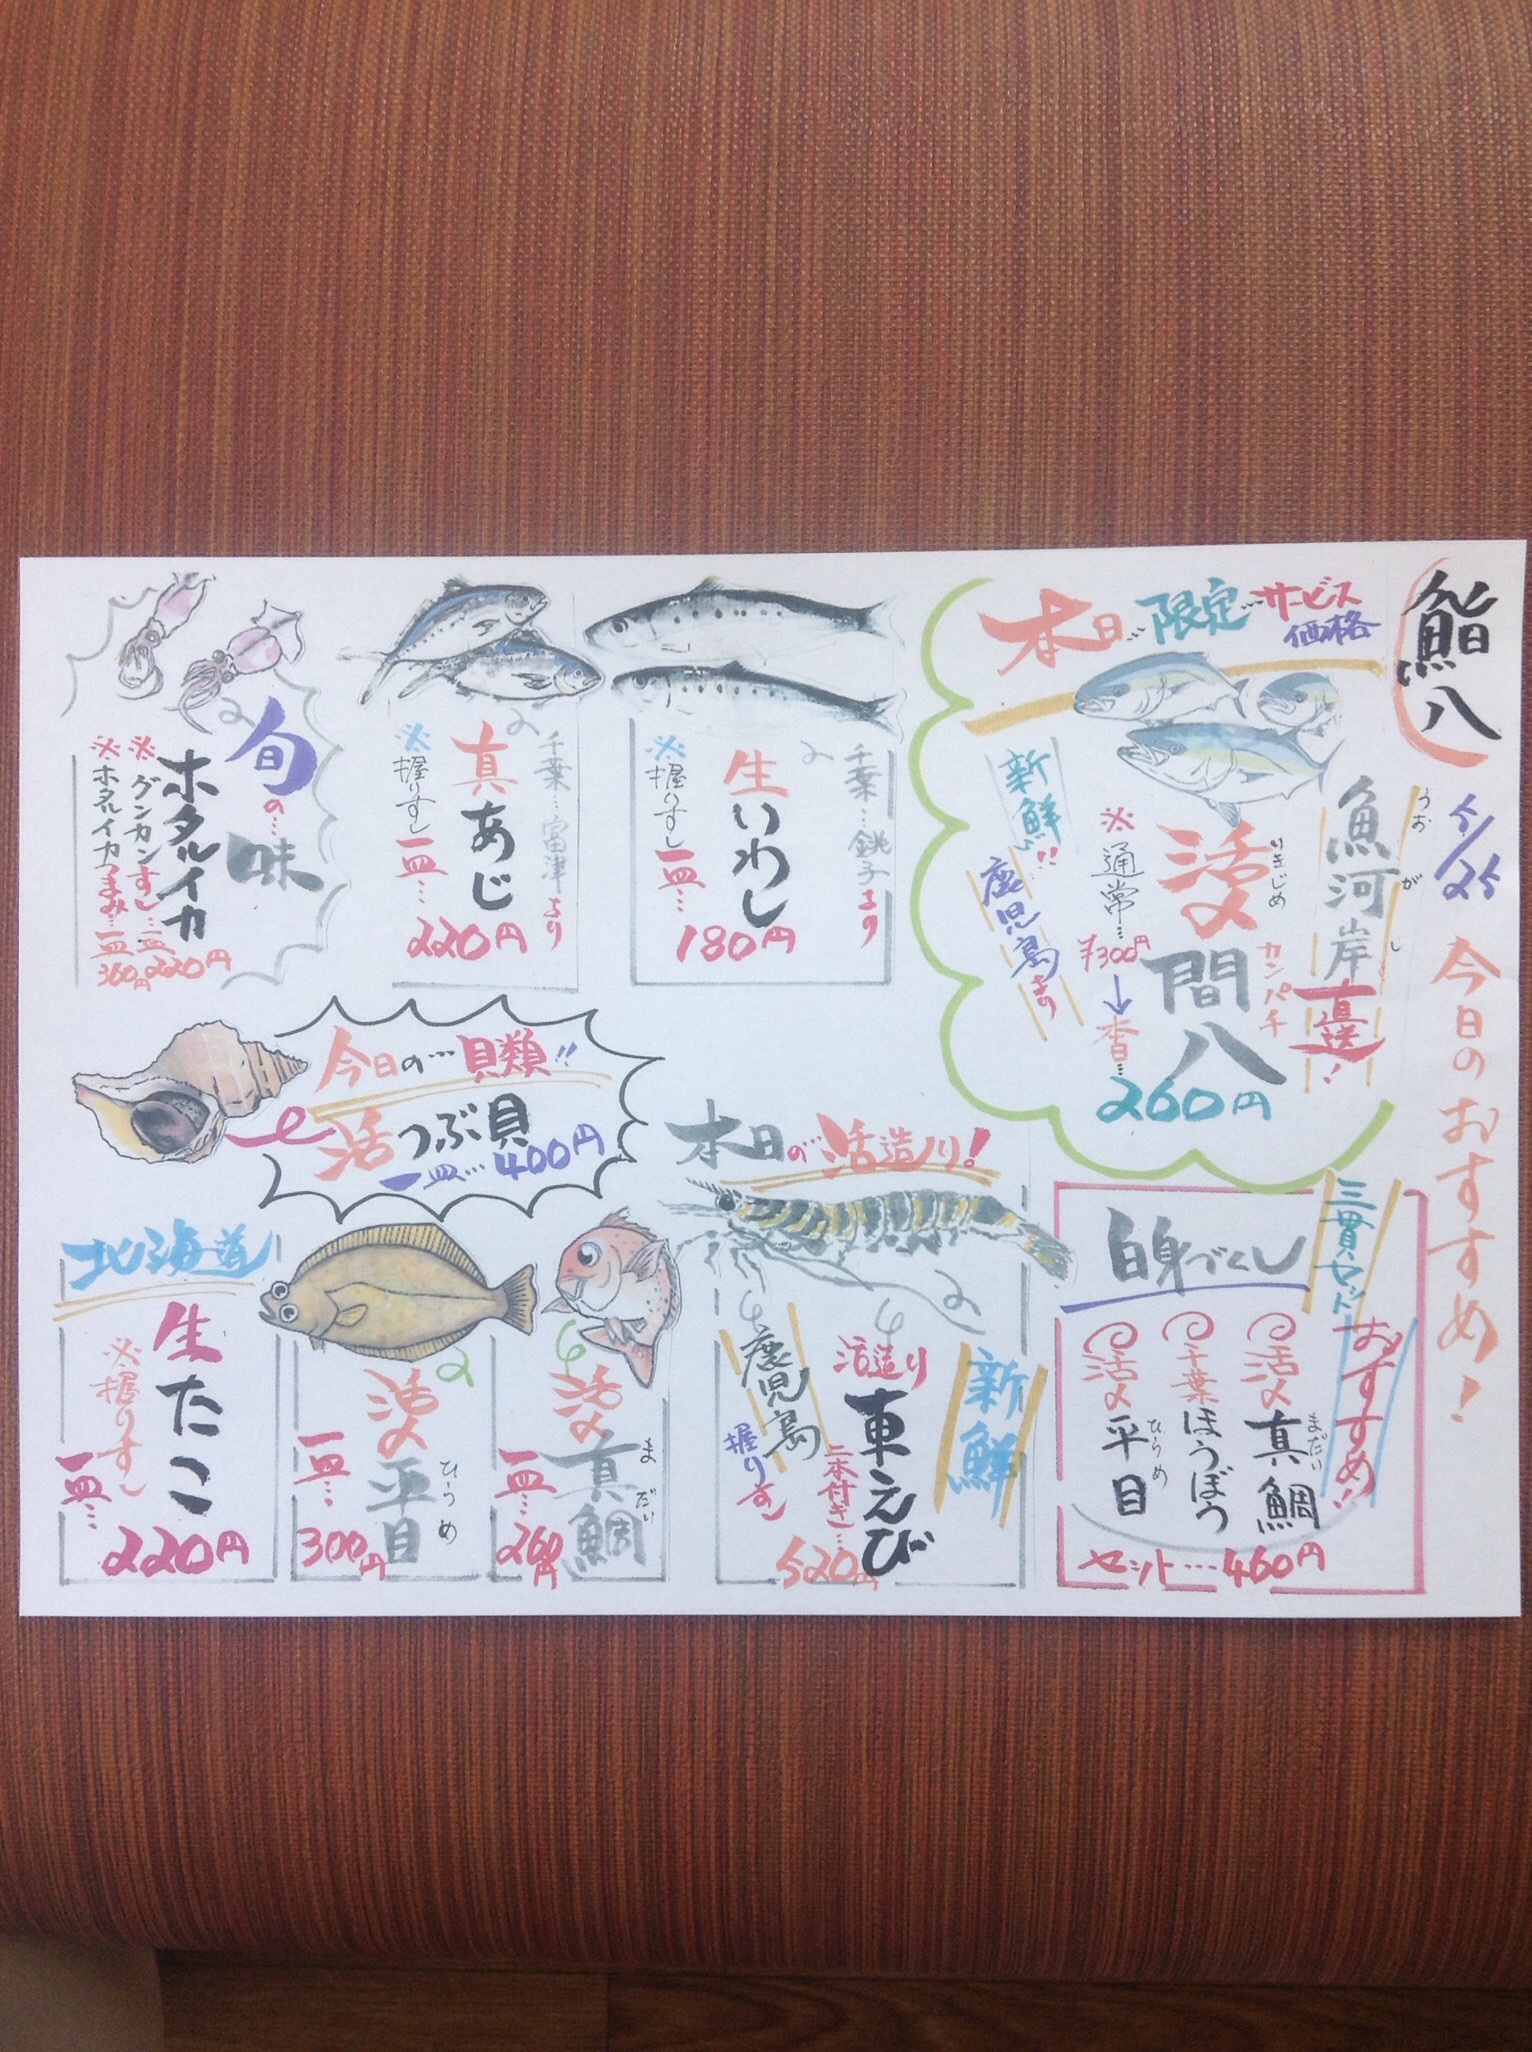 鮨八
5/25
今日のおすすめ!
本日…限定…サービス
価格
魚河岸直送!
うおがし
活〆
いきじめ
間八
カンパチ
※通常…
¥300円
↓
杳…
260円
新鮮!!
鹿児島より
千葉…銚子より
生いわし
※握りすし
一皿…
180円
千葉…富津より
真あじ
※握りすし
一皿…
220円
旬の…味
ホタルイカ
※グンカンすし…一皿220円
※ホタルイカつまみ…一皿360円
今日の…貝類!!
活つぶ貝
一皿…400円
三貫セット
おすすめ!!
白身づくし
活〆真鯛
まだい
千葉ほうぼう
活〆平目
ひらめ
セット…460円
本日の…活造り!
新鮮
活造り
車えび
二本付き…
520円
鹿児島
握りすし
活〆真鯛
まだい
一皿…
260円
活〆平目
ひらめ
一皿…
300円
北海道
生たこ
※握りすし
一皿…
220円